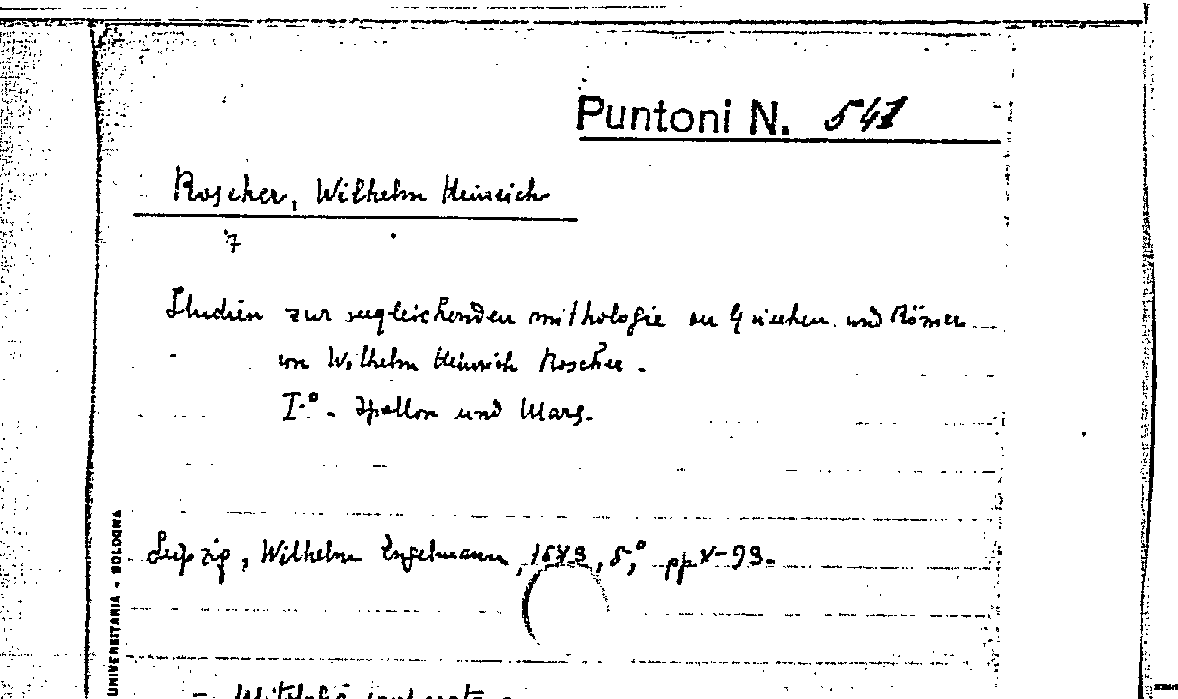 Puntoni N. 541
Roscher, Wilhelm Heinrich
7
Studien zur vergleichenden mithologie der Griechen und Römer
von Wilhelm Heinrich Roscher.
I.° - Apollon und Mars.
Leipzig, Wilhelm Engelmann, 1873, 8°, pp X-93.
UNIVERSITARIA - BOLOGNA